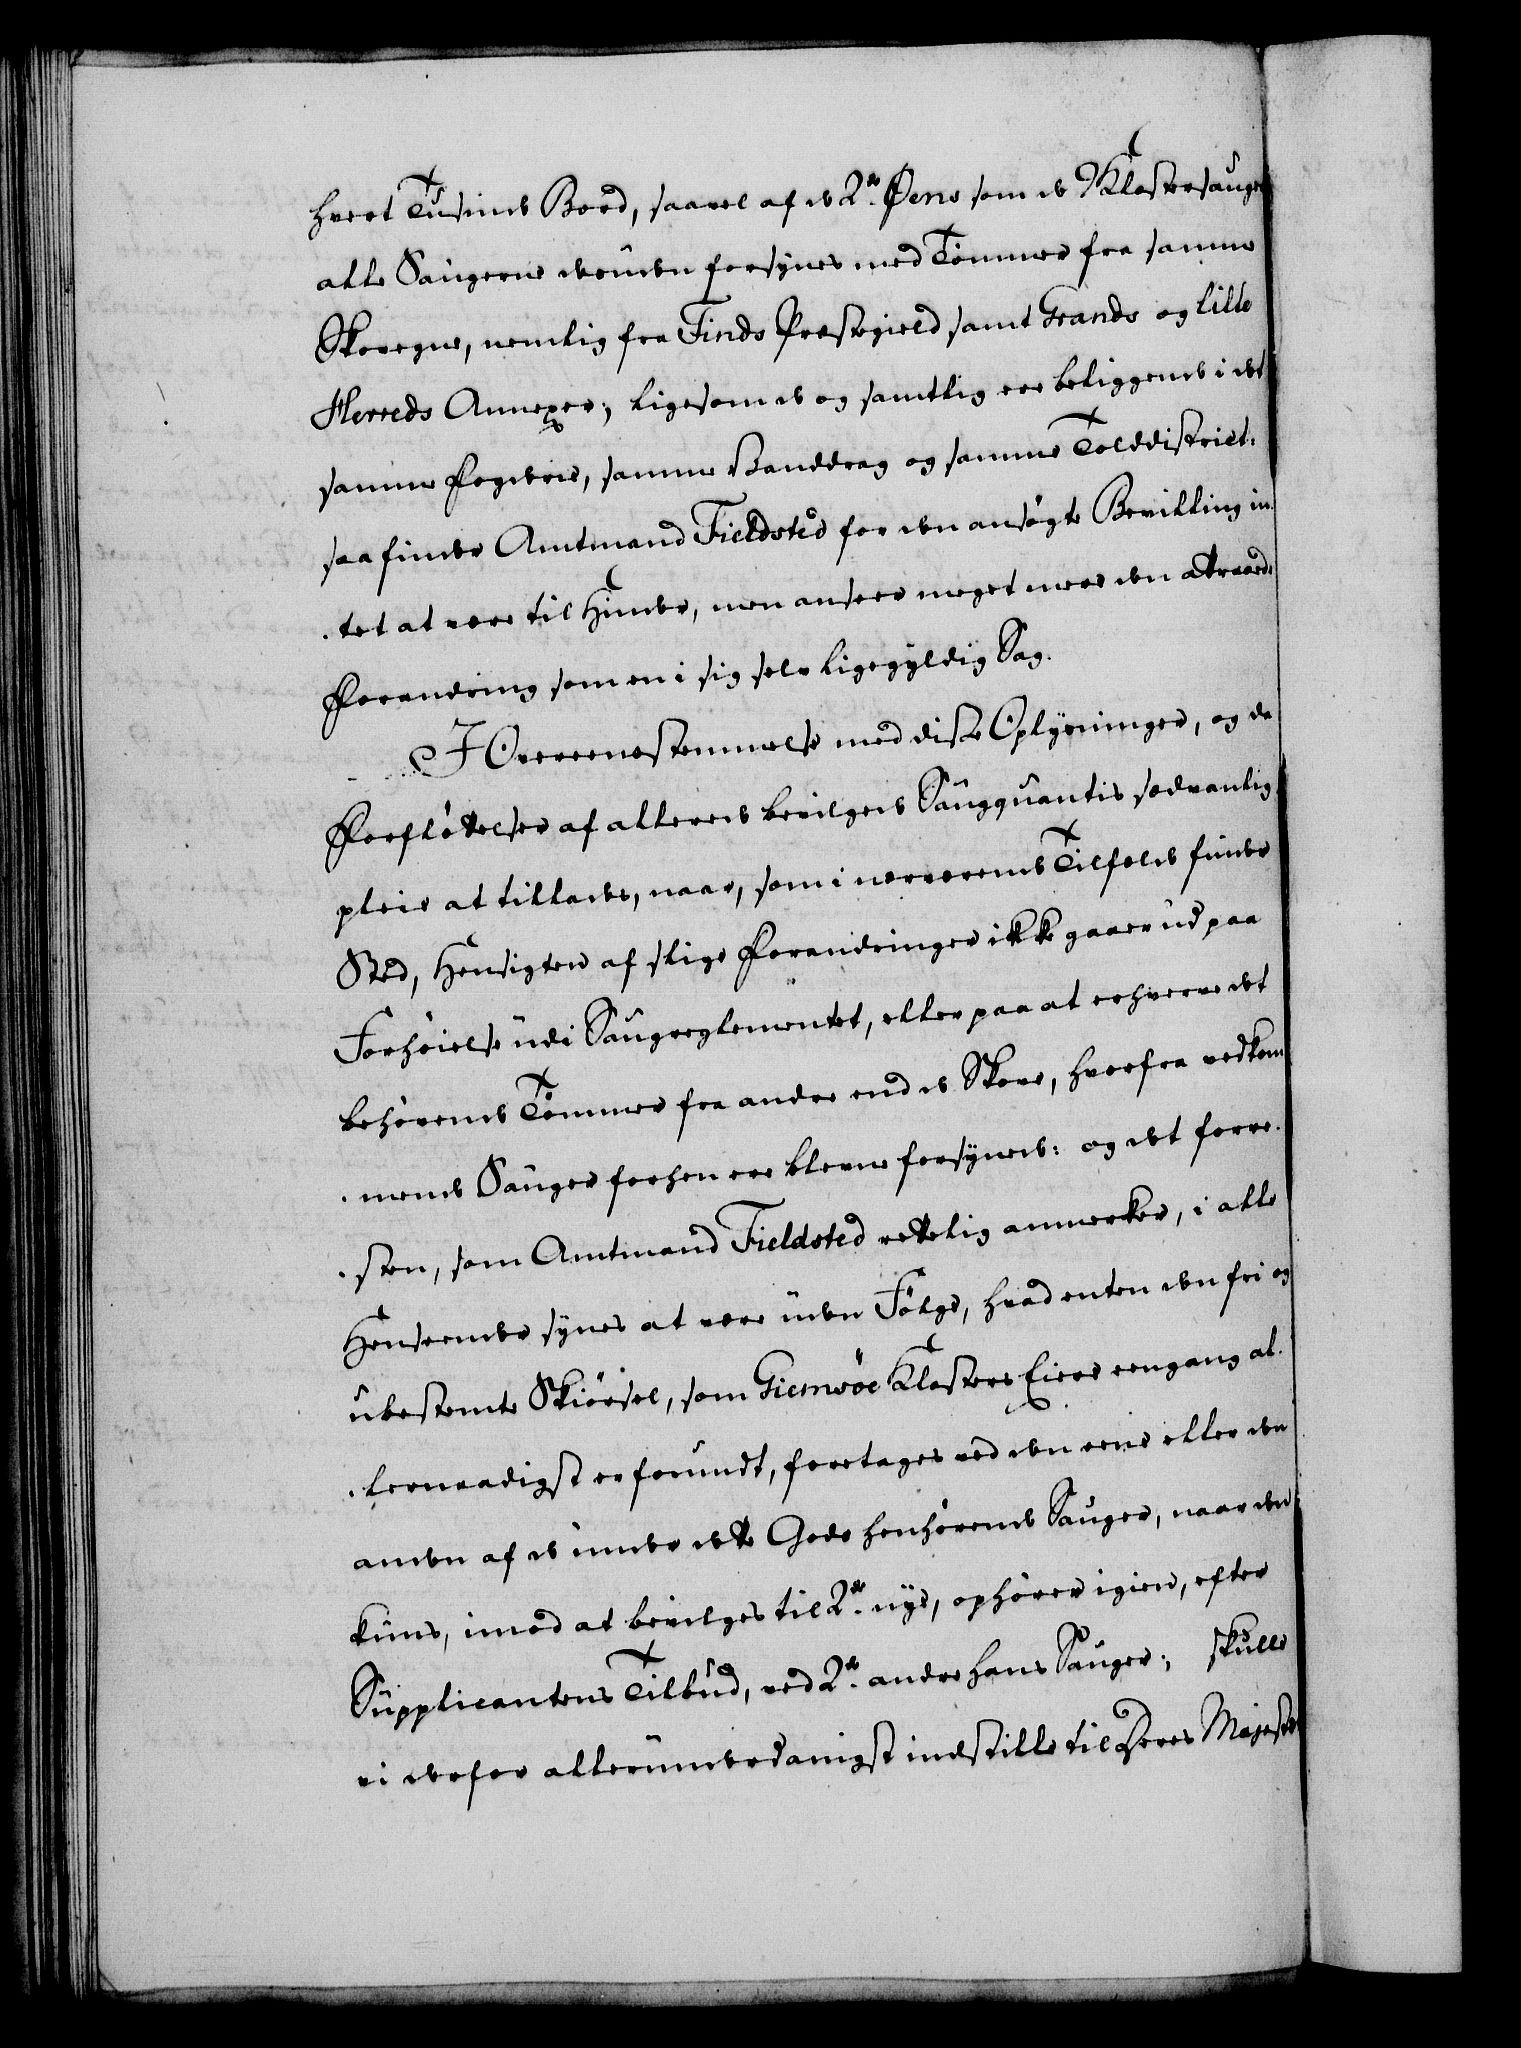 hvert Tusinde Bord, saavel af de 2de Øens som de 7 Klostersauge
alle Saugerne desuden forsÿnes med Tømmer fra samme
Skovegne, nemlig fra Tinds Præstegield samt Grands og Lille
Herreds Annexer; ligesom de og samtlig ere beliggende i det
samme Fogderie, samme Vanddrag og samme Tolddistrict:
saa finder Amtmand Fieldsted for den ansøgte Bevilling in-
-tet at være til Hinder, men anseer meget meer den attraaede
Forandring som en i sig selv ligegyldig Sag.
I Overeensstemmelse med disse Oplysninger, og da
Forflÿttelser af allerede bevilgede Saugquantis sædvanlig
pleie at tillades, naar, som i nærværende Tilfælde finder
Sted, Hensigten af slige Forandringer ikke gaaer ud paa
Forhøielse udi Saugreglementet, eller paa at erhverve det
behøvende Tømmer fra andre end de Skove, hvorfra vedkom
-mende Sauger forhen ere blevne forsÿnede: og det forre-
-sten, som Amtmand Fieldsted rettelig anmerker, i alle
Henseender synes at være uden Følge, hvad enten den fri og
ubestemte Skiørsel, som Giemsøe Klosters Eiere eengang al-
-lernaadigst er forundt, foretages ved den eene eller den
anden af de under dette Gods henhørende Sauger, naar den
kuns, imod at bevilges til 2de nÿe, ophører igien, efter
Supplicantens Tilbud, ved 2de andre hans Sauger; skulle
vi derfor allerunderdanigst indstille til Deres Majestæt